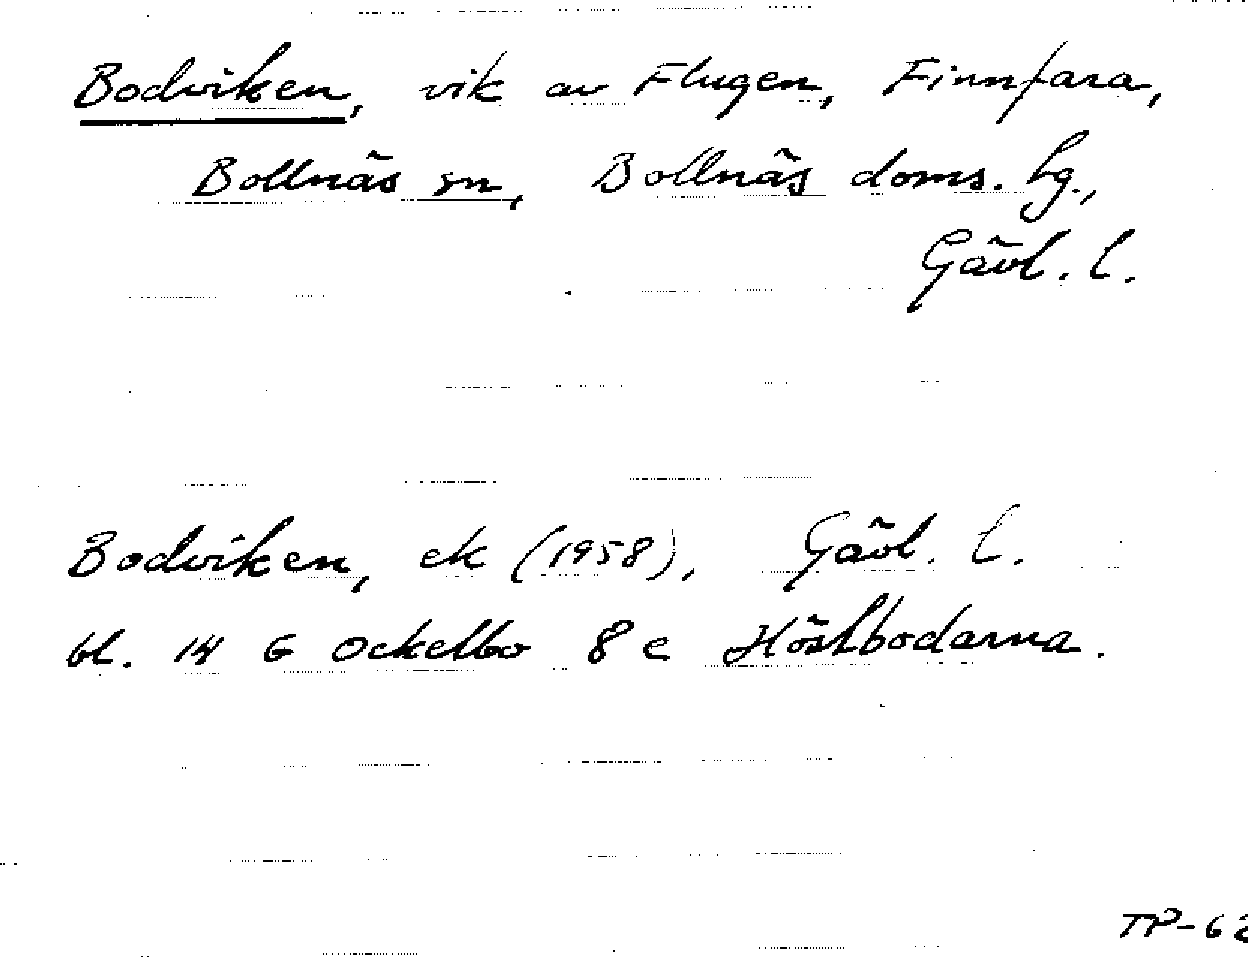 Bodviken, vik av Flugen, Finnfara,
Bollnäs sn, Bollnäs doms. hg.,
Gävl. l.
Bodviken, ek (1958), Gävl. l.
bl. 14 G Ockelbo 8 e Höstbodarna.
TP-62